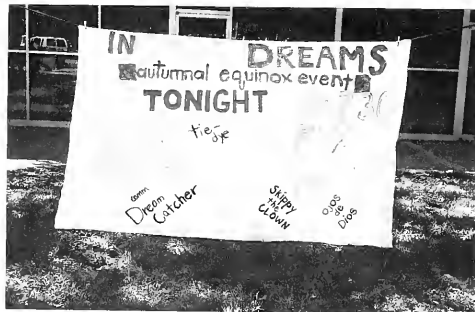 IN DREAMS
autumnal equinox event
TONIGHT
tie-dye
comm.
Dream
Catcher
Skippy
the
CLOWN
Ojos
de
Dios